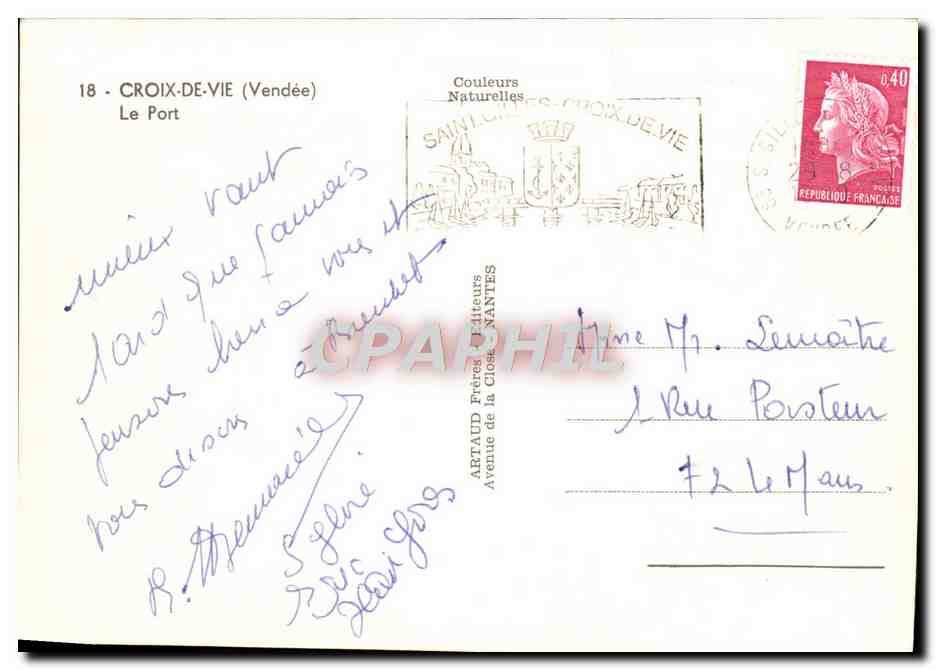 18 - CROIX-DE-VIE (Vendée)
Le Port
Couleurs
Naturelles
SAINT GILLES-CROIX.DE.VIE
0,40
POSTES
REPUBLIQUE FRANÇAISE
29 8
VENDEE
mieux vaut
tard que jamais
pensons bien a vous et
vous disons à
Sylvie
Eric
ARTAUD Frères - Editeurs
Avenue de la Close NANTES
Mme Mr. Lemaître
1 Rue
72 Le Mans
CPAPHIL